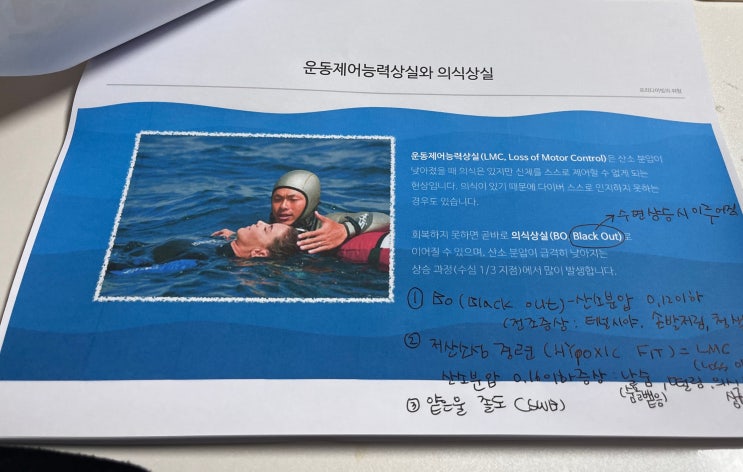 운동제어능력상실과 의식상실
프리다이빙의 위험
운동제어능력상실(LMC, Loss of Motor Control)은 산소 분압이
낮아졌을 때 의식은 있지만 신체를 스스로 제어할 수 없게 되는
현상입니다. 의식이 있기 때문에 다이버 스스로 인지하지 못하는
경우도 있습니다.
→수면상승시 이루어짐
회복하지 못하면 곧바로 의식상실(BO, Black Out)로
이어질 수 있으며, 산소 분압이 급격히 낮아지는
상승 과정(수심 1/3 지점)에서 많이 발생합니다.
① BO (Black out) - 산소분압 0.12이하
(전조증상 : 터널시야, 손발저림, 청
② 저산소성 경련 (HYpoxic FIT) = LMC
(Loss o
산소분압 0.16이하증상 : , 떨림,
③ 얕은물 졸도 (SWB)